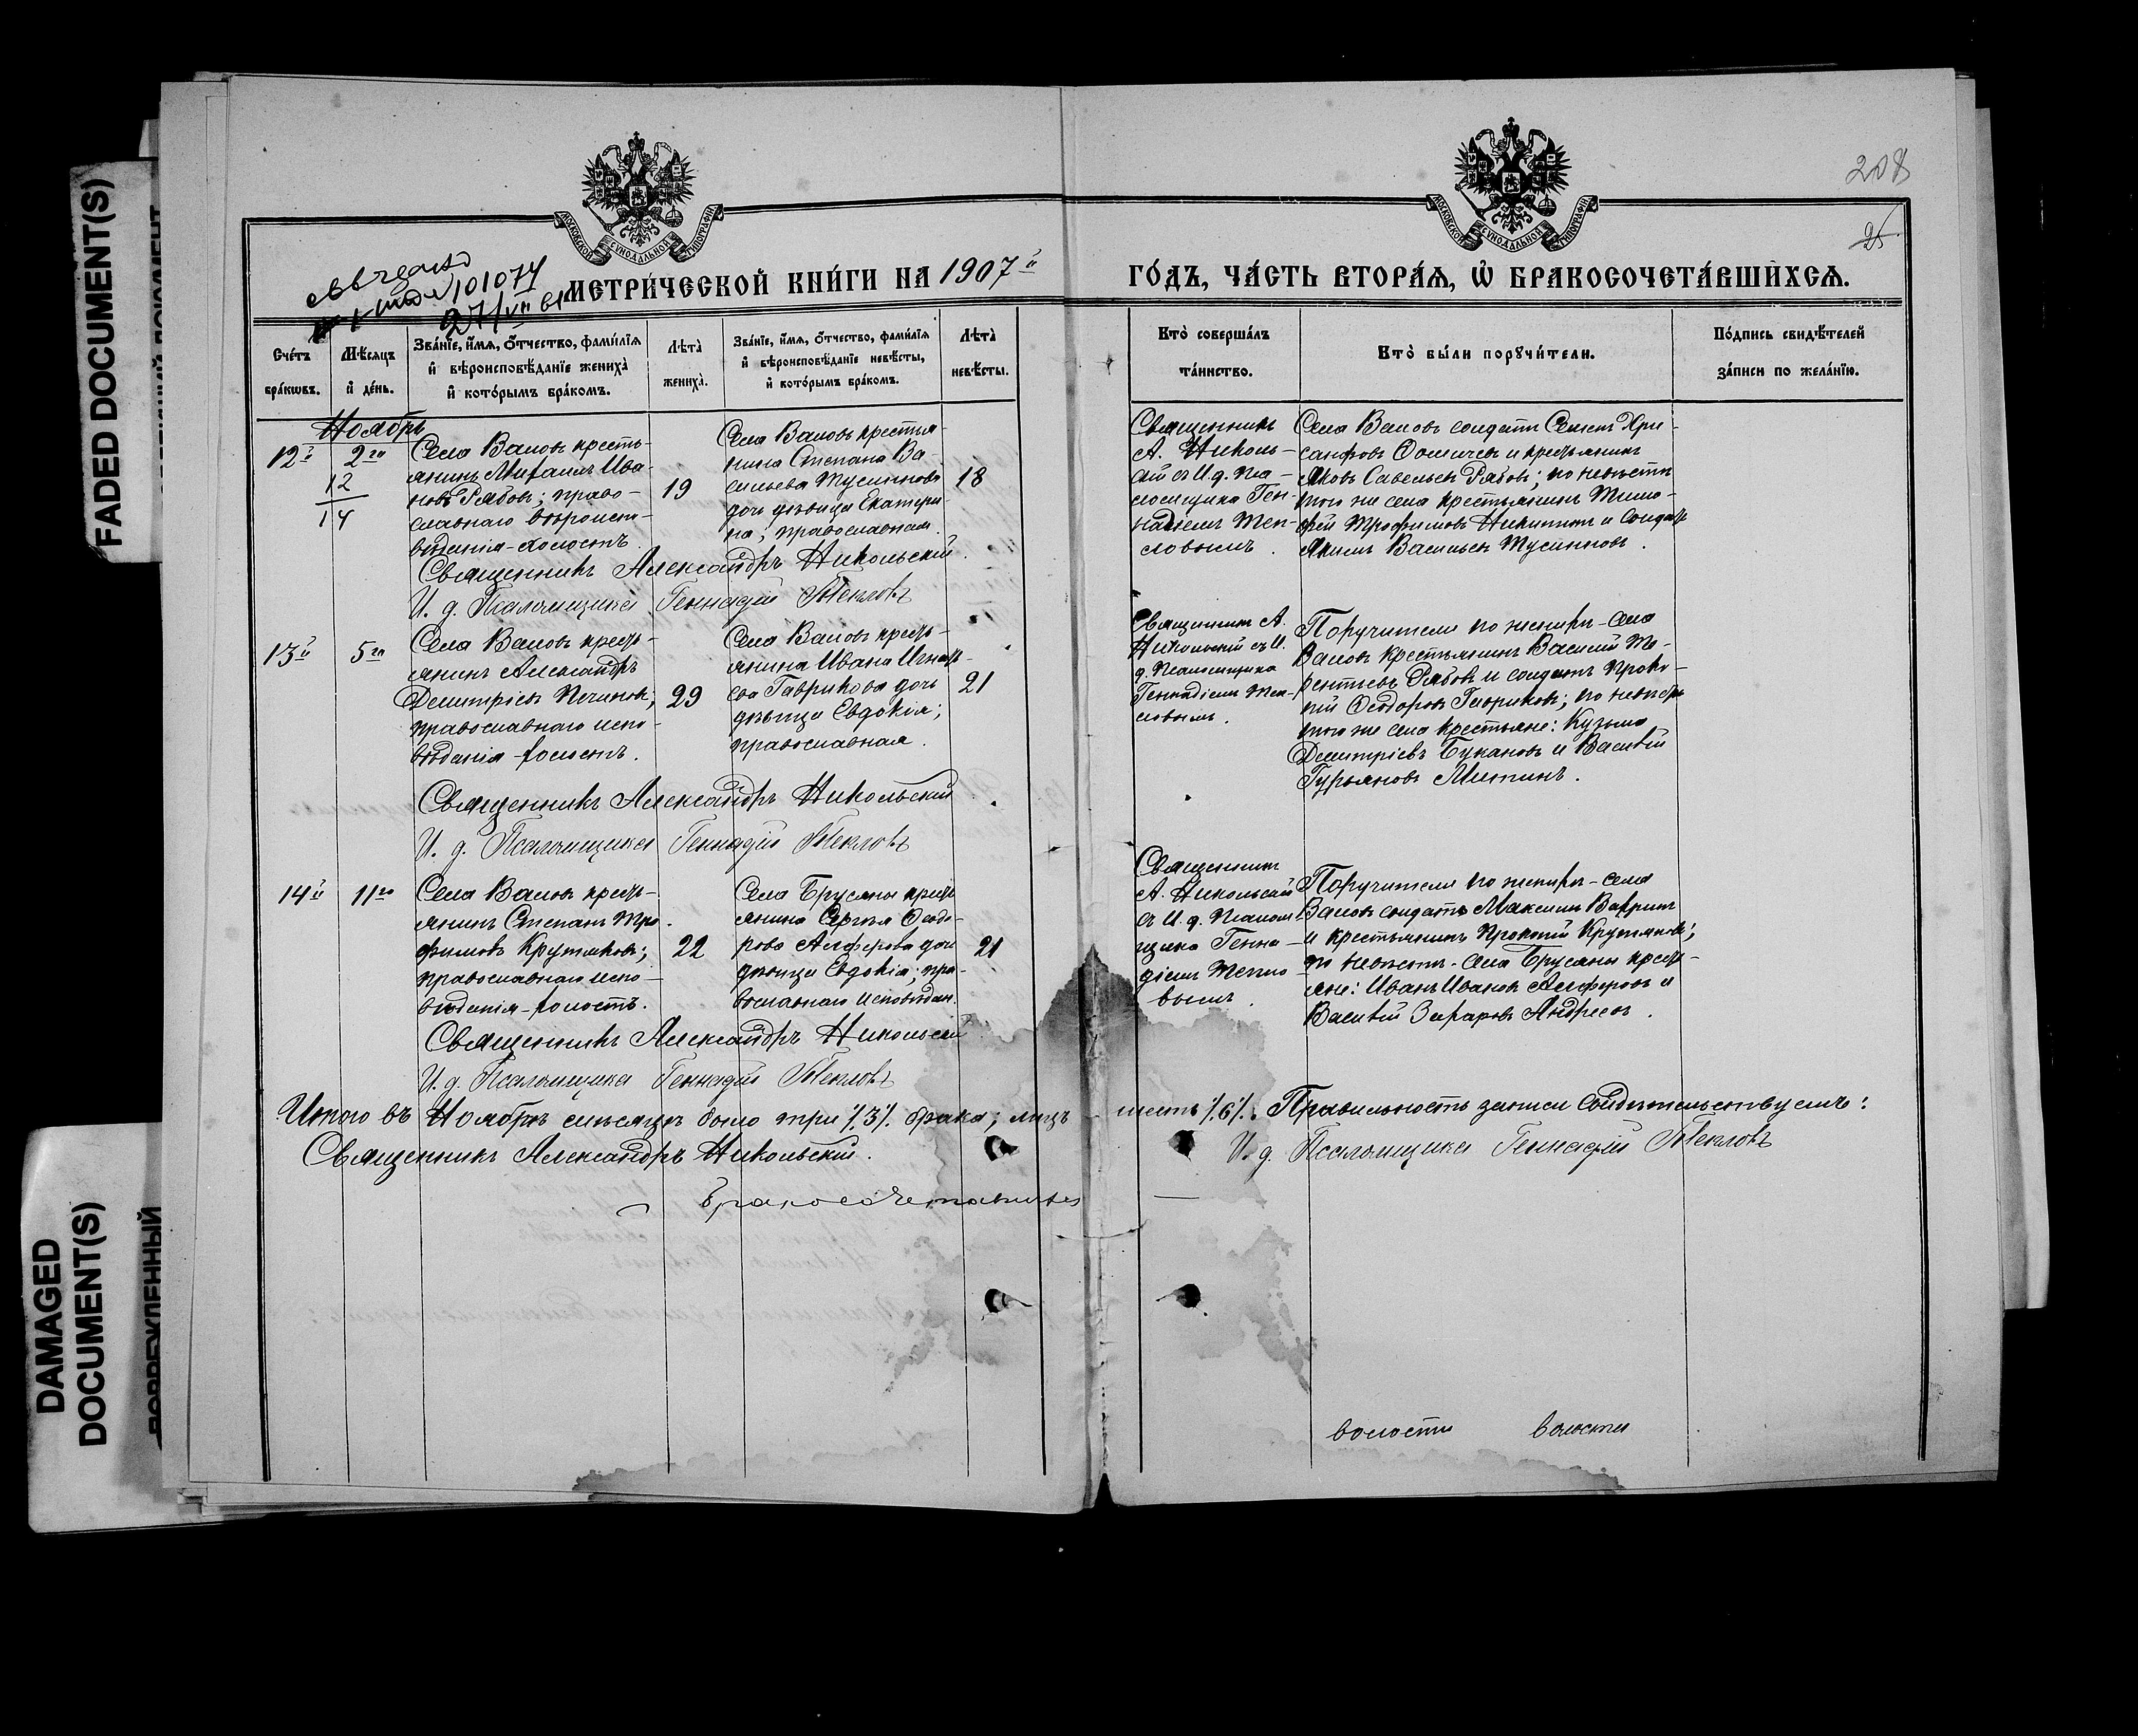 FADED DOCUMENT(S)
DAMAGED
DOCUMENT(S)
МОСКОВСКОЙ СѴНОДАЛЬНОЙ ТИПОГРАФІИ
МОСКОВСКОЙ СѴНОДАЛЬНОЙ ТИПОГРАФІИ
208
25
№ 101074
27/VII 61
МЕТРИ́ЧЕСКОЙ КНИ́ГИ НА 1907й
ГО́ДЪ, ЧА́СТЬ ВТОРА́Я, Ѽ БРАКОСОЧЕТА́ВШИХСЯ.
Сче́тъ бра́кѡвъ.
Мѣ́сяцъ и де́нь.
Зва́нїе, и́мя, ѻ́тчество, фами́лїя и вѣроисповѣ́данїе жениха̀ и кото́рымъ бра́комъ.
Лѣта̀ жениха̀.
Зва́нїе, и́мя, ѻ́тчество, фами́лїя и вѣроисповѣ́данїе невѣ́сты, и кото́рымъ бра́комъ.
Лѣта̀ невѣ́сты.
Кто̀ соверша́лъ та́инство.
Кто̀ бы́ли порꙋчи́тели.
По́дпись свидѣ́телей за́писи по жела́нїю.
Ноябрь
12й
2го
12
14
Села Валовъ кресть-
янинъ Михаилъ Ива-
новъ Рябовъ; право-
славнаго вѣроиспо-
вѣданія - холостъ.
19
Села Валовъ крестья-
нина Степана Ва-
сильева Мусинкова
дочь дѣвица Екатери-
на; православная.
18
Священникъ
А. Николь-
ій съ И. д. Пса-
ломщика Ген-
надіемъ Теп-
ловымъ.
Села Валовъ солдатъ Семенъ Хри-
санфовъ Фомичевъ и крестьянинъ
Яковъ Савельевъ Рябовъ; по невѣстѣ
того же села крестьянинъ Тимо-
фей Трофимовъ Никитинъ и солдатъ
Акимъ Васильевъ Мусинковъ.
Священникъ Александръ Никольскій.
И. д. Псаломщика Геннадій Тепловъ
13й
5го
Села Валовъ кресть-
янинъ Александръ
Димитріевъ Печиновъ;
православнаго испо-
вѣданія - холостъ.
29
Села Валовъ кресть-
янина Ивана Игнать-
ева Гаврикова дочь
дѣвица Евдокія;
православная.
21
Священникъ А.
Никольскій съ И.
д. Псаломщика
Геннадіемъ Теп-
ловымъ.
Поручители по женихѣ - села
Валовъ крестьянинъ Василій Те-
рентьевъ Рябовъ и солдатъ Проко-
пій Ѳеодоровъ Гавриковъ; по невѣстѣ
того же села крестьяне: Кузьма
Димитріевъ Букановъ и Василій
Гурьяновъ Митинъ.
Священникъ Александръ Никольскій
И. д. Псаломщика Геннадій Тепловъ
14й
11го
Села Валовъ кресть-
янинъ Степанъ Тро-
фимовъ Крутяковъ;
православнаго испо-
вѣданія - холостъ.
22
Села Брусяны кресть-
янина Сергѣя Ѳеодо-
рова Алферова дочь
дѣвица Евдокія; пра-
вославнаго исповѣдан.
21
Священникъ
А. Никольскій
съ И. д. Псалом-
щика Генна-
діемъ Тепло-
вымъ.
Поручители по женихѣ - села
Валовъ солдатъ Максимъ
и крестьянинъ Прокопій Крутяковъ;
по невѣстѣ - села Брусяны кресть-
яне: Иванъ Ивановъ Алферовъ и
Василій Захаровъ Андреевъ.
Священникъ Александръ Никольскій
И. д. Псаломщика Геннадій Тепловъ
Итого въ Ноябрѣ мѣсяцѣ было три /.3/. брака; лицъ шесть /.6/. Правильность записи свидѣтельствуемъ:
Священникъ Александръ Никольскій.
И. д. Псаломщика Геннадій Тепловъ
Бракосочетавшихся
волости волости